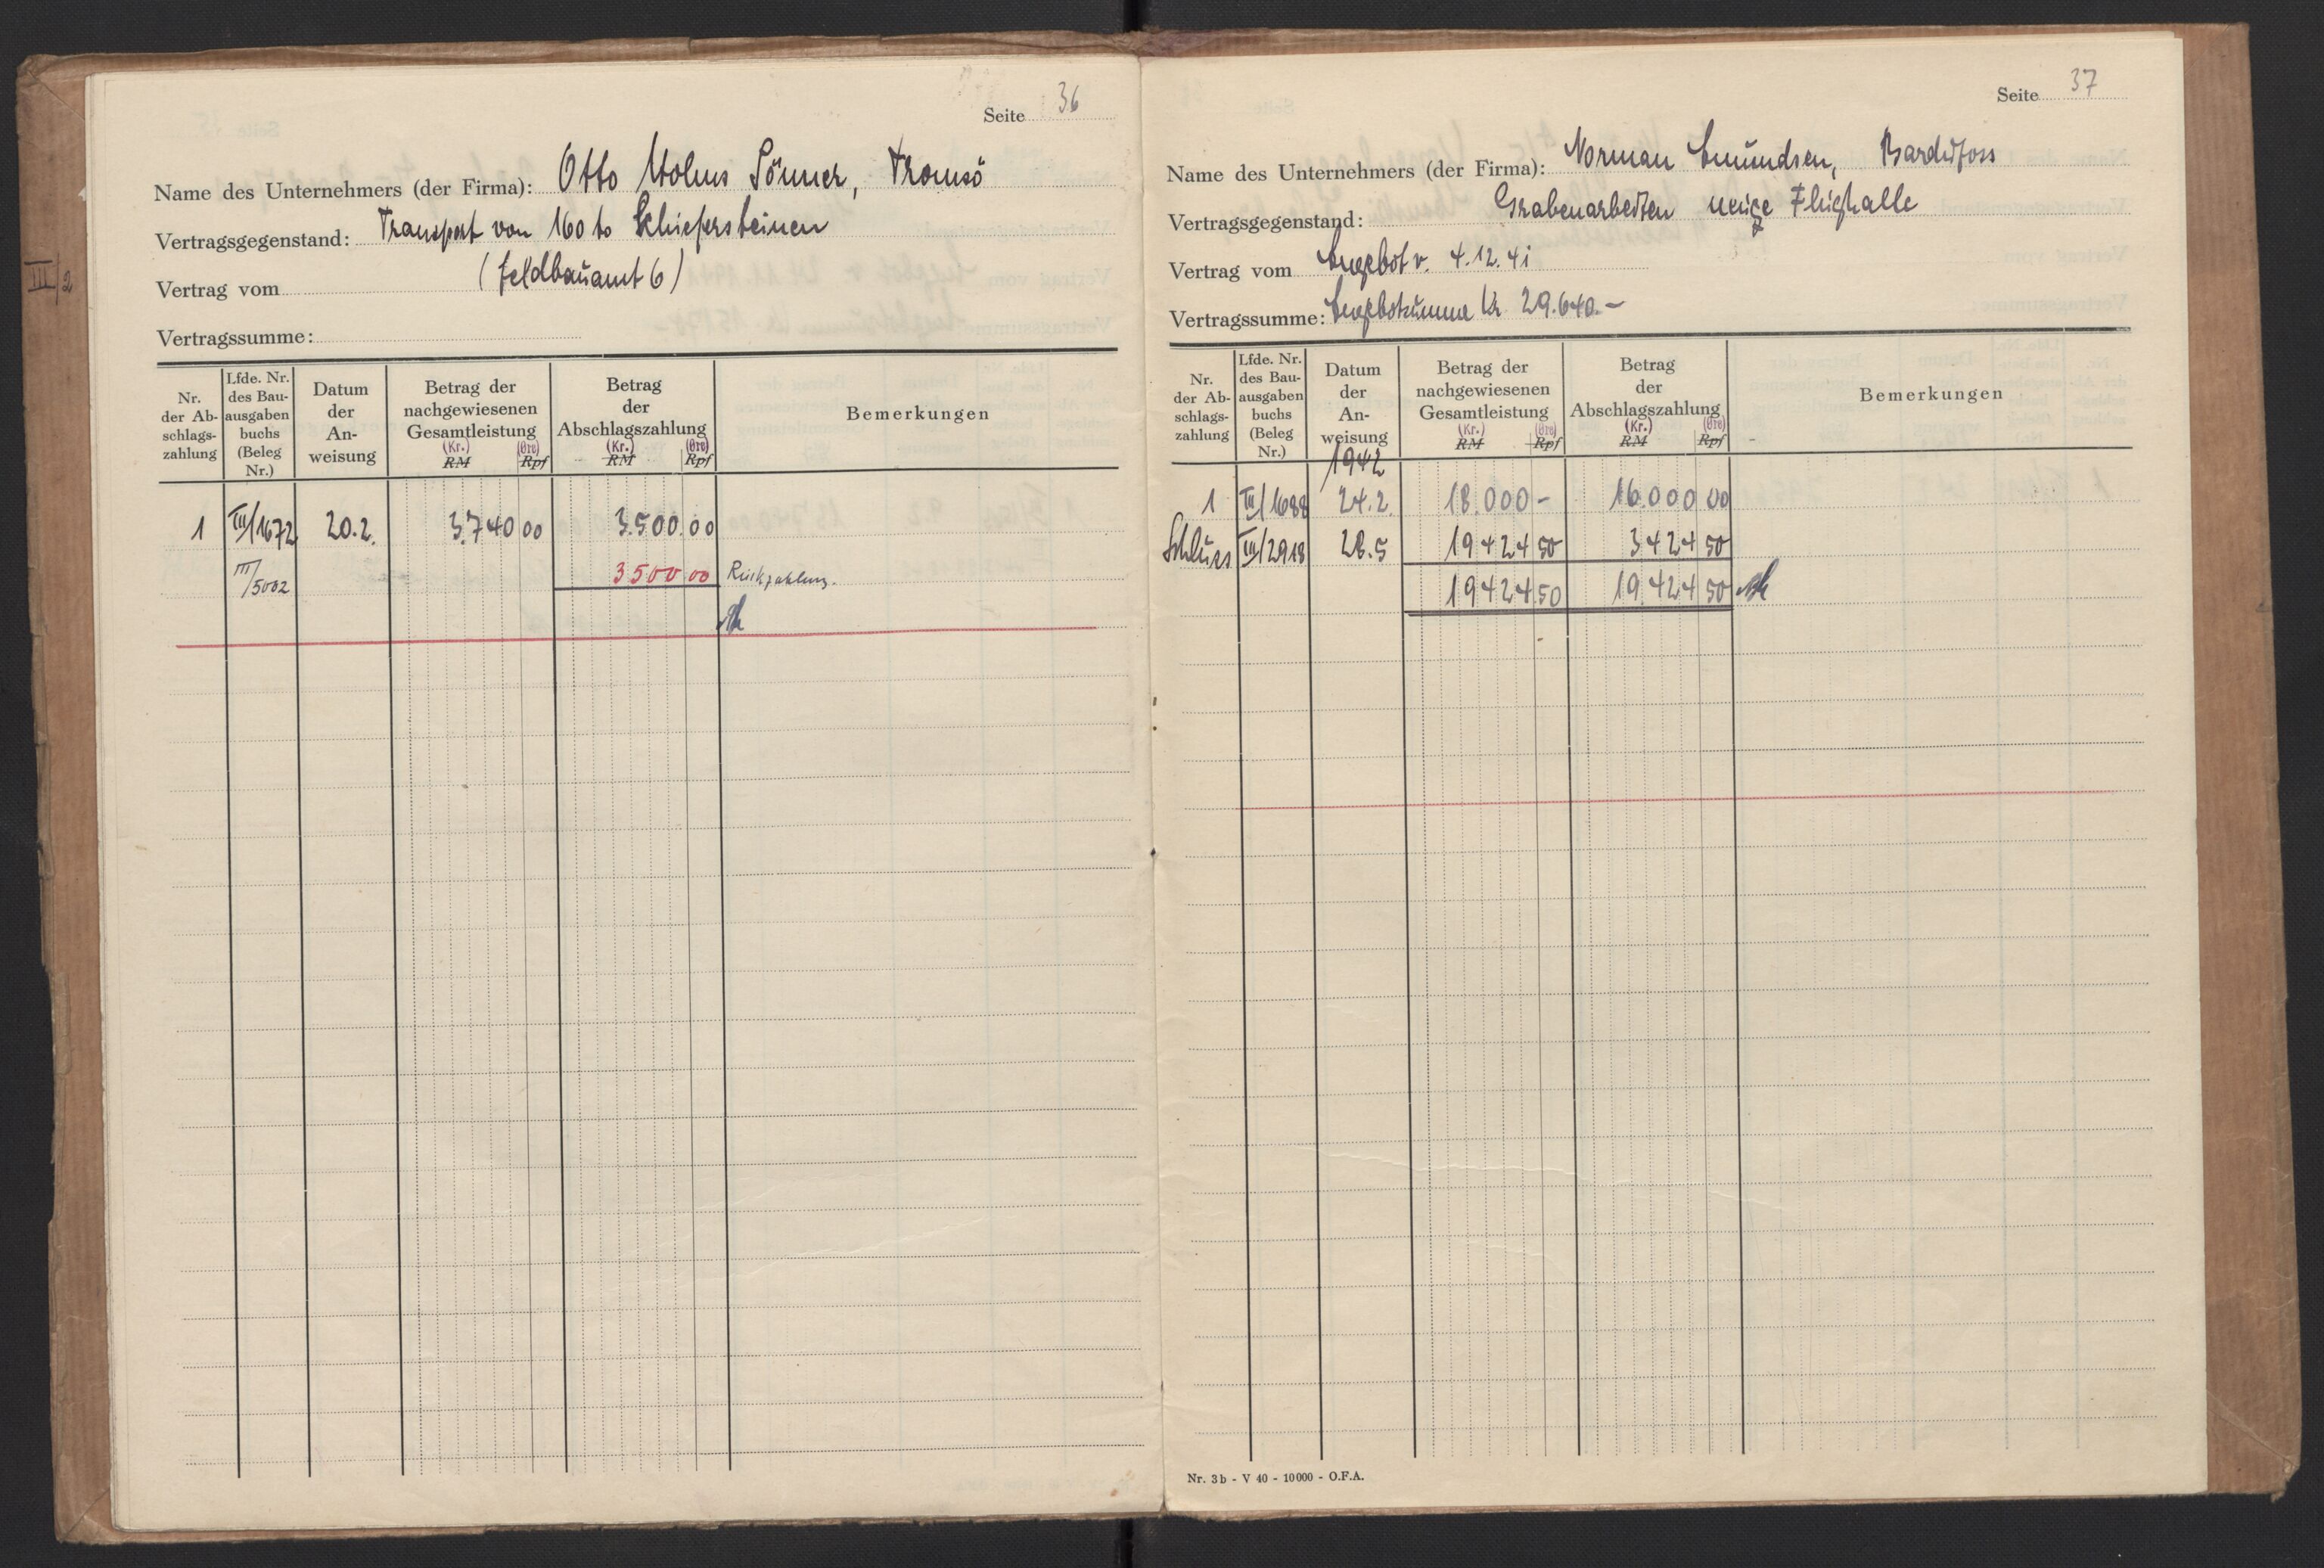 III/2
Seite 36
Name des Unternehmers (der Firma): Otto Holms Sönner, Tromsö
Vertragsgegenstand: Transport von 160 to Schiefersteinen
Vertrag vom (Feldbauamt 6)
Vertragssumme:
Nr. der Ab-schlags-zahlung
Lfde. Nr. des Bau-ausgaben buchs (Beleg Nr.)
Datum der An-weisung
Betrag der nachgewiesenen Gesamtleistung (Kr.) RM (Øre) Rpf
Betrag der Abschlagszahlung (Kr.) RM (Øre) Rpf
Bemerkungen
1 III/1672 20.2. 3.740 00 3.500 00
III/5002 3500 00 Rückzahlung.
Seite 37
Name des Unternehmers (der Firma): Norman Amundsen, Bardufoss
Vertragsgegenstand: Grabenarbeiten neue Flughalle
Vertrag vom Angebot v. 4.12.41
Vertragssumme: Angebotsumme Kr. 29.640.-
Nr. der Ab-schlags-zahlung
Lfde. Nr. des Bau-ausgaben buchs (Beleg Nr.)
Datum der An-weisung
Betrag der nachgewiesenen Gesamtleistung (Kr.) RM (Øre) Rpf
Betrag der Abschlagszahlung (Kr.) RM (Øre) Rpf
Bemerkungen
1942
1 III/1688 24.2. 18.000 - 16.000 00
Schluss III/2918 28.5 19424 50 3424 50
19424 50 19.424 50
Nr. 3b - V 40 - 10000 - O.F.A.